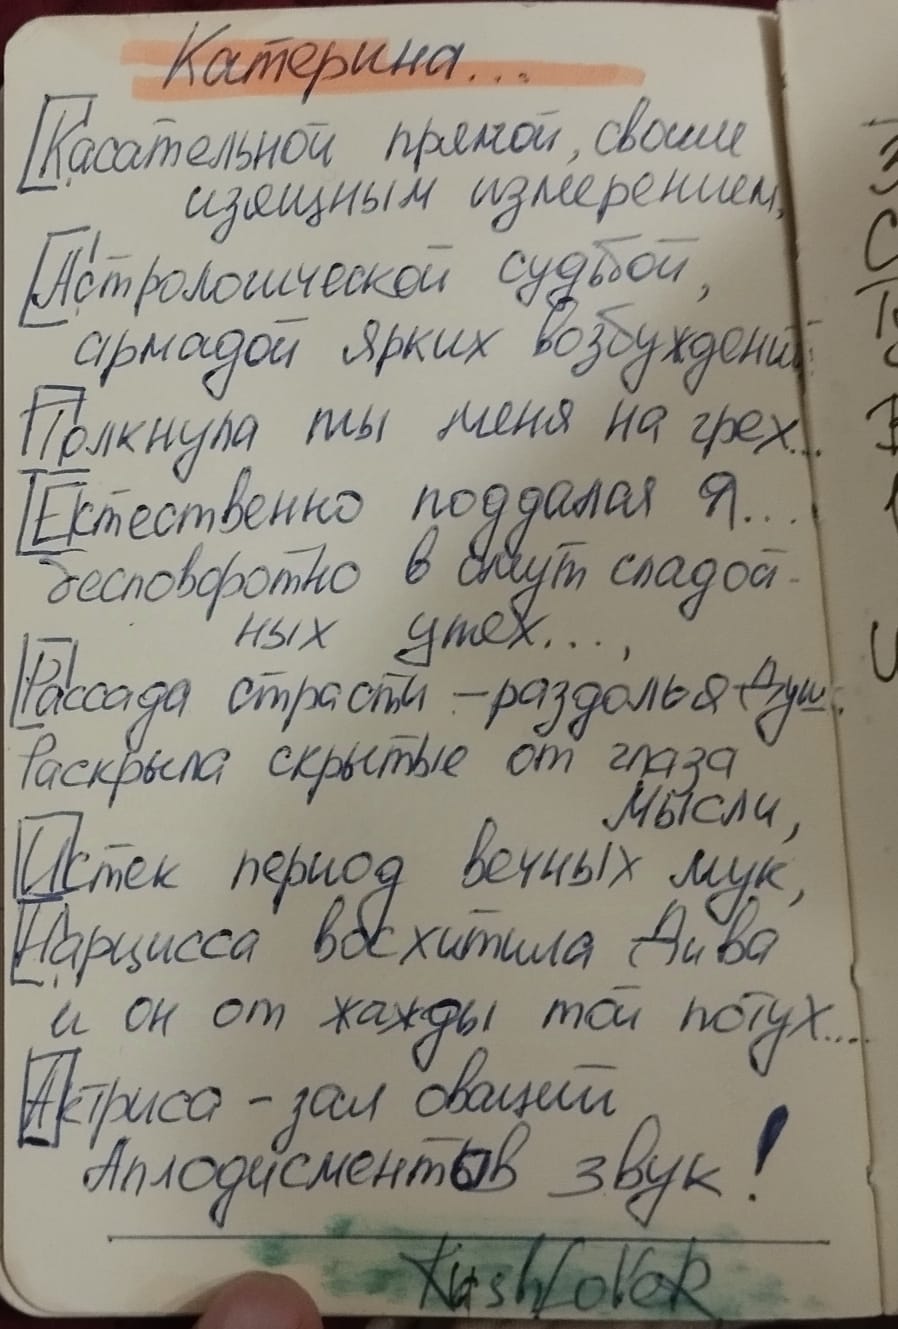 Катерина...
Касательной прямой, своим
изящным измерением,
Астрологической судьбой,
армадой ярких возбуждений
Толкнула ты меня на грех...
Ектественно поддалая Я...
бесповоротно в омут сладой-
ных утех...,
Рассада страсти - раздолья Душ.
Раскрыла скрытые от глаза
мысли,
Истек период вечных мук,
Нарцисса восхитила Дива
и он от жажды той потух....
Актриса - зал оваций
Аплодисментов звук!